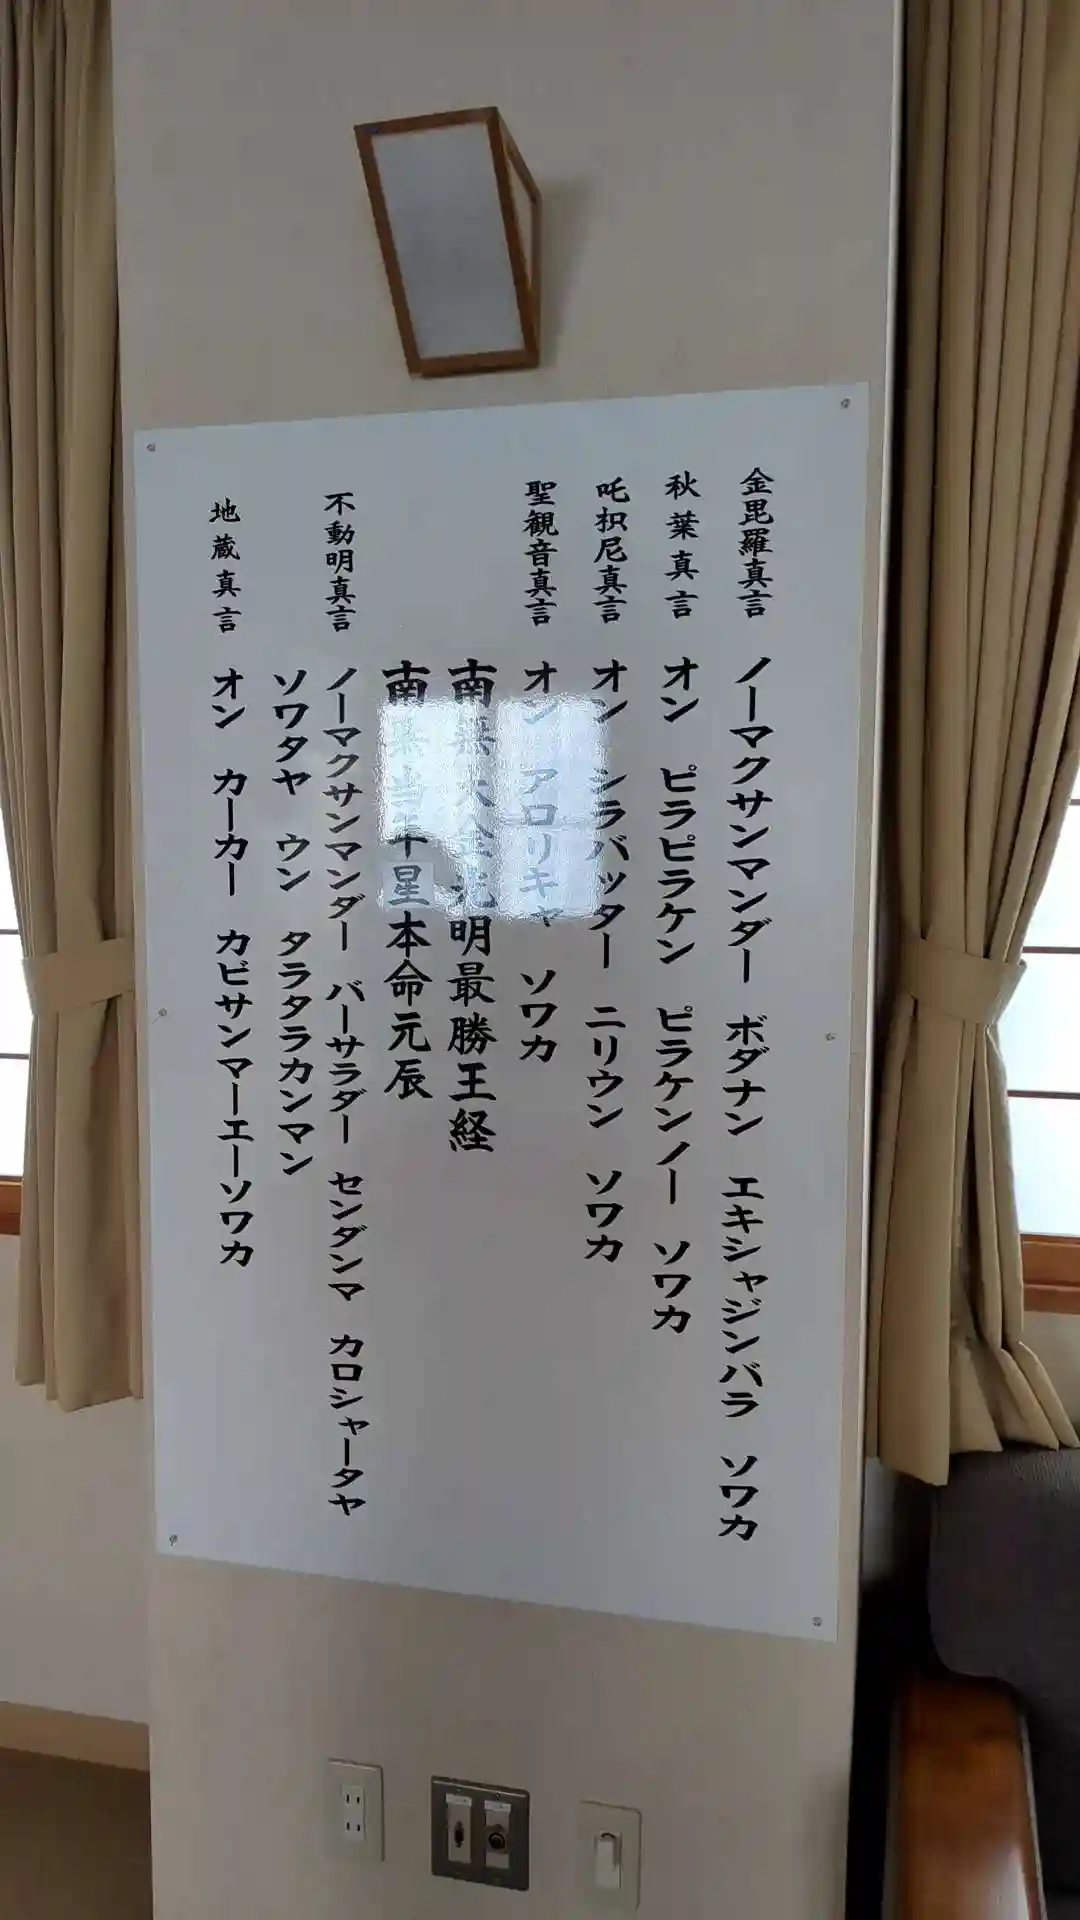 金毘羅真言 ノーマクサンマンダー ボダナン エキシャジンバラ ソワカ
秋葉真言 オン ピラピラケン ピラケンノー ソワカ
吒枳尼真言 オン シラバッター ニリウン ソワカ
聖観音真言 オン アロリキャ ソワカ
南無大金光明最勝王経
南無当年星本命元辰
不動明真言 ノーマクサンマンダー バーサラダー センダンマ カロシャータヤ
ソワタヤ ウン タラタラカンマン
地蔵真言 オン カーカー カビサンマーエーソワカ